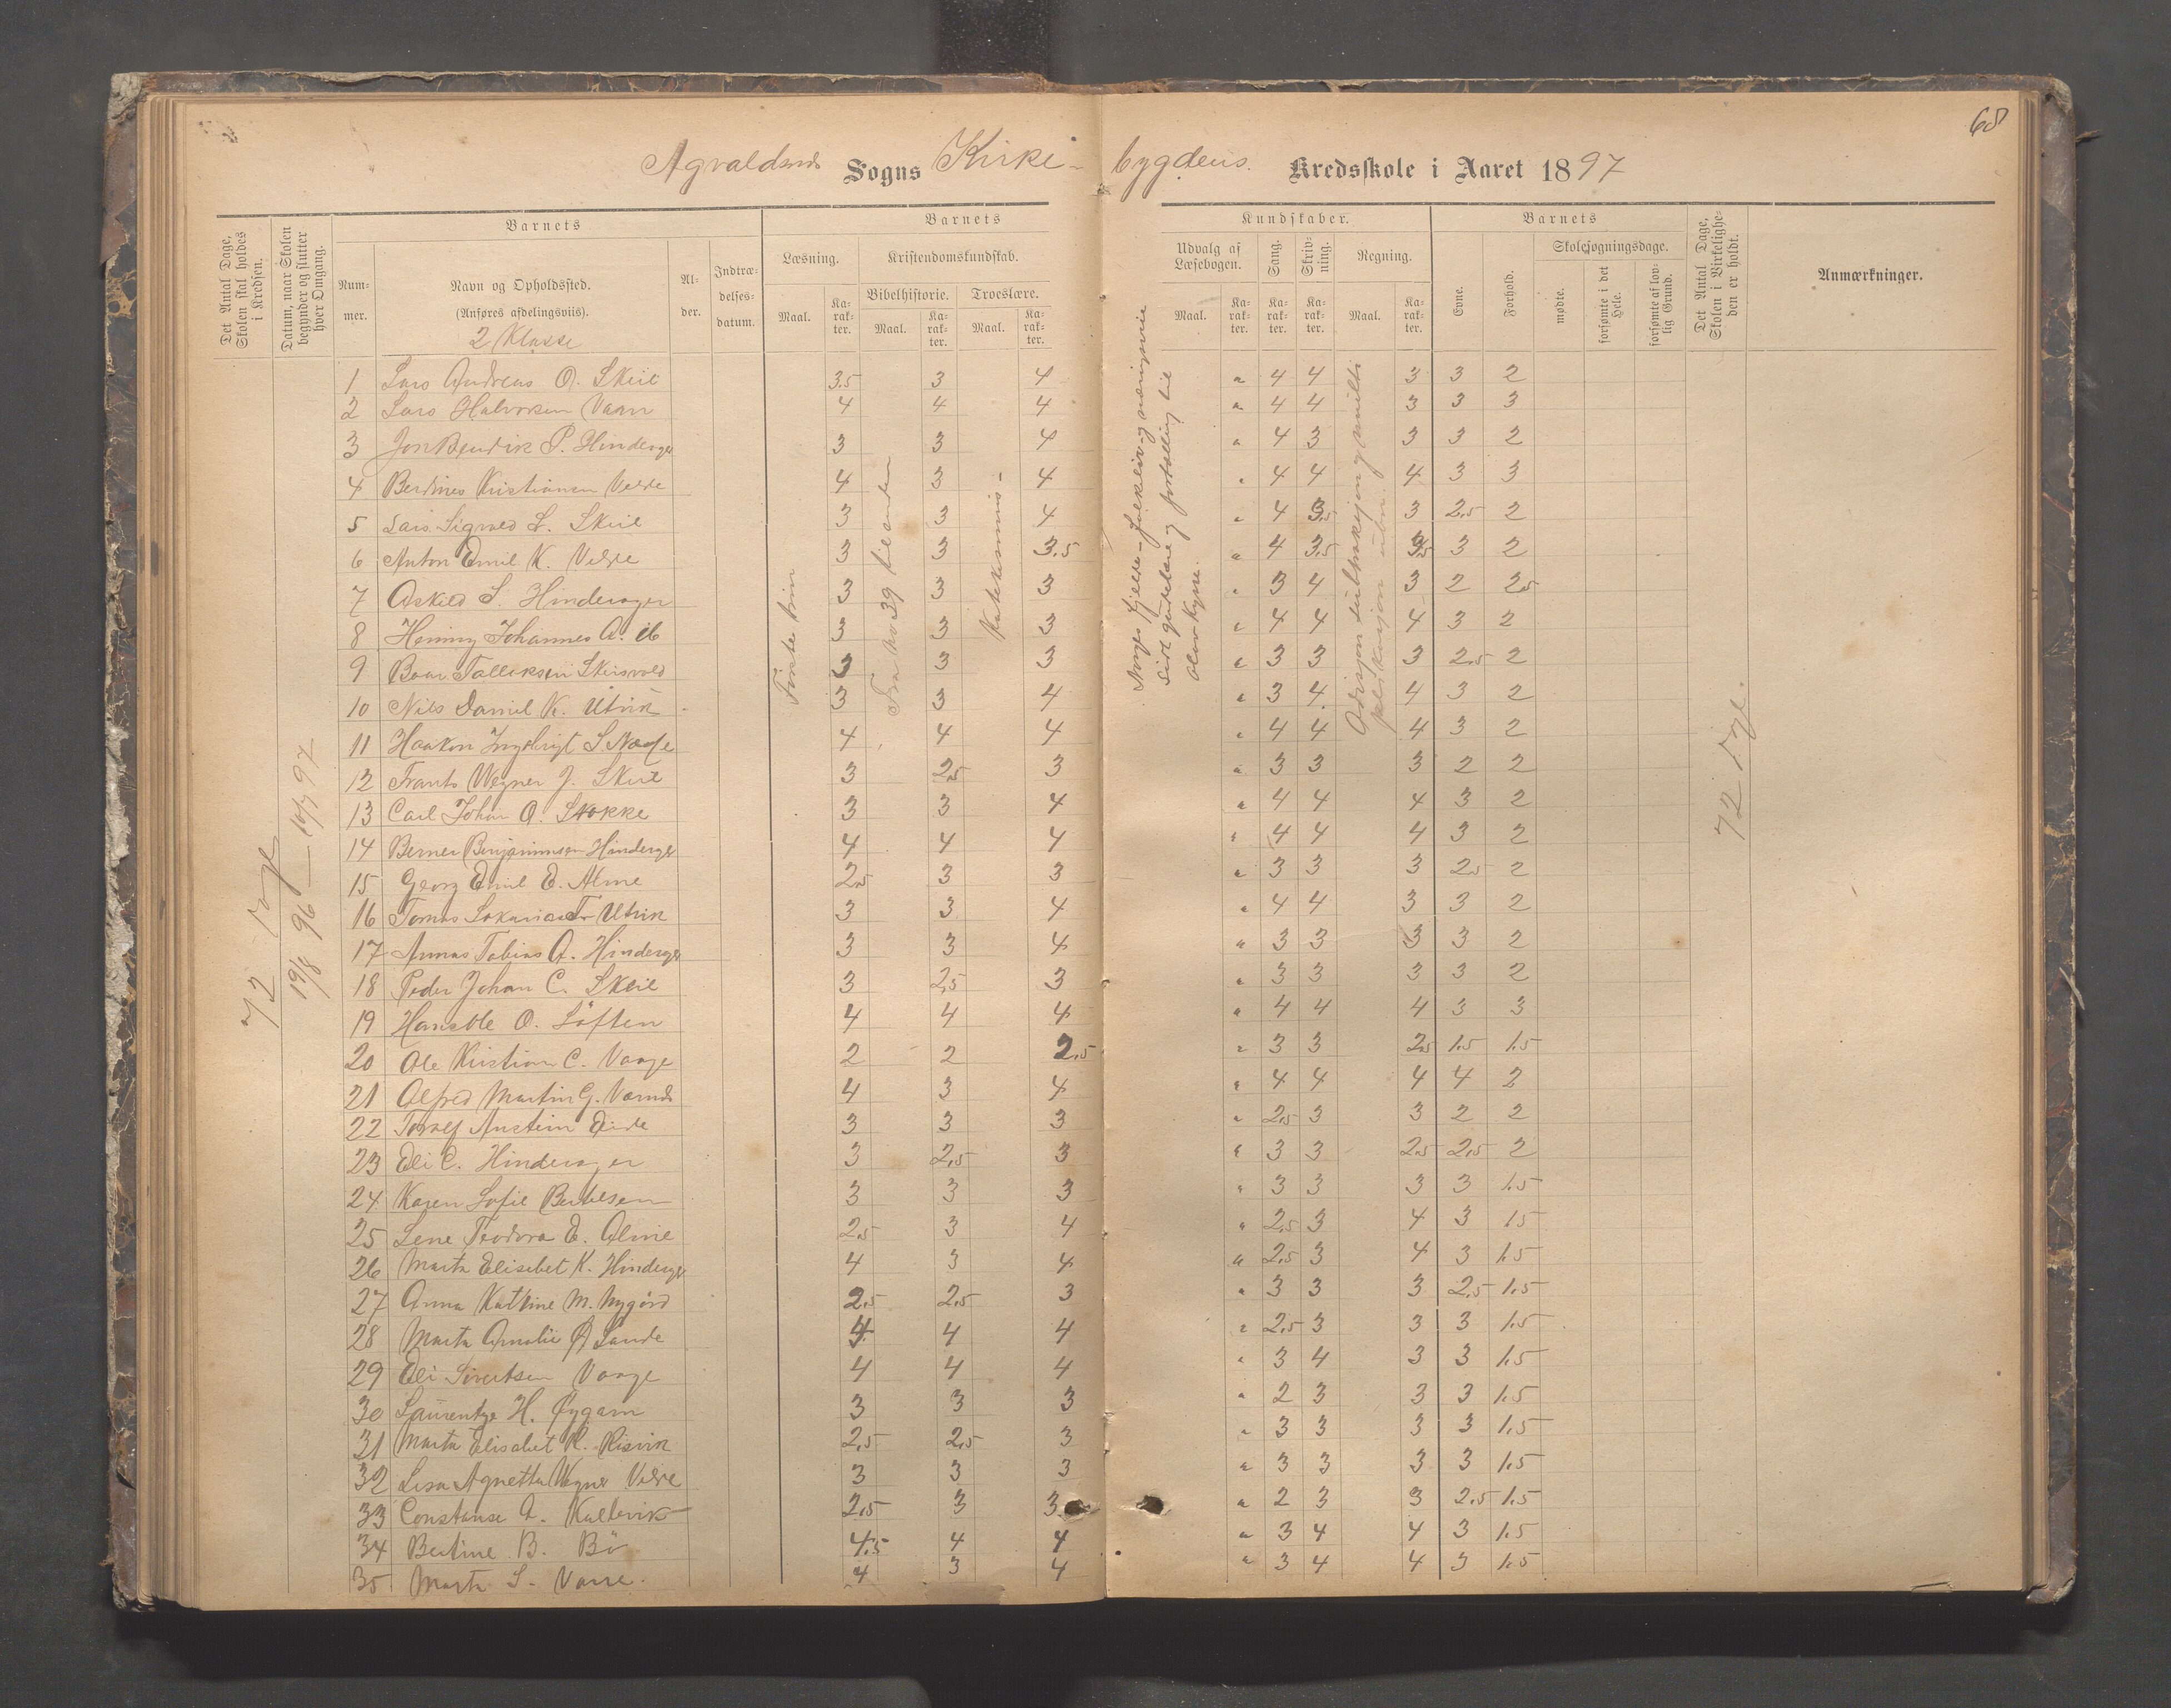 68
Sogns Kirke-bygdens. Kredsskole i Aaret 1897
Det Antal Dage, Skolen skal holdes i Kredsen.
Datum, naar Skolen begynder og slutter hver Omgang.
Barnets
Barnets
Kundskaber.
Barnets
Det Antal Dage, Skolen i Virkeligheden er holdt.
Anmærkninger.
Num-mer.
Navn og Opholdssted.
(Anføres afdelingsviis).
2 Klasse
Al-der.
Indtræ-delses-datum.
Læsning.
Kristendomskundskab.
Udvalg af Læsebogen.
Sang.
Skriv-ning.
Regning.
Evne.
Forhold.
Skolesøgningsdage.
Bibelhistorie.
Troeslære.
Maal.
Ka-rak-ter.
Maal.
Ka-rak-ter.
Maal.
Ka-rak-ter.
Maal.
Ka-rak-ter.
Ka-rak-ter.
Ka-rak-ter.
Maal.
Ka-rak-ter.
mødte.
forsømte i det Hele.
forsømte af lov-lig Grund.
72
19/8 96 —
72
1 Lars Andreas O. Skeie 3.5 3 4 " 4 4 3 3 2
2 Lars Halvorsen 4 4 4 " 4 4 3 3 3
3 Jon Bendik P. Hinderager 3 3 4 " 4 3 3 3 2
4 Kristiansen Velde 4 3 4 " 4 4 4 3 3
5 Lars Sigvald L. Skeie 3 3 4 " 4 3.5 3 2.5 2
6 Anton Emil K. Velde 3 3 3.5 " 4 3.5 3.5 3 2
7 Askild S. Hinderager 3 3 3 " 3 4 3 2 2.5
8 Johannes A. 3 3 3 " 4 4 4 3 2
9 Tallaksen 3 3 3 " 3 3 3 2.5 2
10 Nils Daniel K. Utvik 3 3 4 " 3 4 4 3 2
11 Haakon Ingebrigt S. 4 4 4 " 4 4 4 3 2
12 Frants Wegner J. Skeie 3 2.5 3 " 3 3 3 2 2
13 Carl Johan O. Stokke 3 3 4 " 4 4 4 3 2
14 Berner Benjaminsen Hinderager 4 4 4 " 4 4 4 3 2
15 Georg Emil E. Alme 2.5 3 3 " 3 3 3 2.5 2
16 Tomas Utvik 3 3 4 " 4 4 3 3 2
17 Tobias A. Hinderager 3 3 4 " 3 3 3 3 2
18 Peder Johan C. Skeie 3 2.5 3 " 3 3 3 3 2
19 Hans Ole O. 4 4 4 " 4 4 4 3 3
20 Ole Kristian C. Vaage 2 2 2.5 " 3 3 2.5 1.5 1.5
21 Alfred Martin G. 4 3 4 " 4 4 4 4 2
22 Austein Eide 3 3 3 " 2.5 3 3 2 2
23 Eli C. Hinderager 3 2.5 3 " 3 3 2.5 2.5 2
24 Karen Sofie 3 3 3 " 3 3 3 3 1.5
25 Lene Teodora E. Alme 2.5 3 4 " 2.5 3 4 3 1.5
26 Marta Elisabet K. Hinderager 4 3 4 " 2.5 3 4 3 1.5
27 Anna Katrine M. Nygård 2.5 2.5 3 " 3 3 3 2.5 1.5
28 Marta Amalie Sande 4 4 4 " 2.5 3 3 3 1.5
29 Eli Sivertsen Vaage 4 4 4 " 3 4 3 3 1.5
30 Laurentze H. Øygarn 3 3 3 " 2 3 3 3 1.5
31 Marta Elisabet K. Risvik 2.5 2.5 3 " 3 3 3 3 1.5
32 Lisa Agnetha Wegner Velde 3 3 3 " 3 3 3 3 1.5
33 Constanse A. Kallevik 2.5 3 3 " 2 3 3 2.5 1.5
34 Bertine B. Bö 4.5 4 4 " 3 4 4 3 1.5
35 Marta S. 4 3 4 " 3 4 4 3 1.5